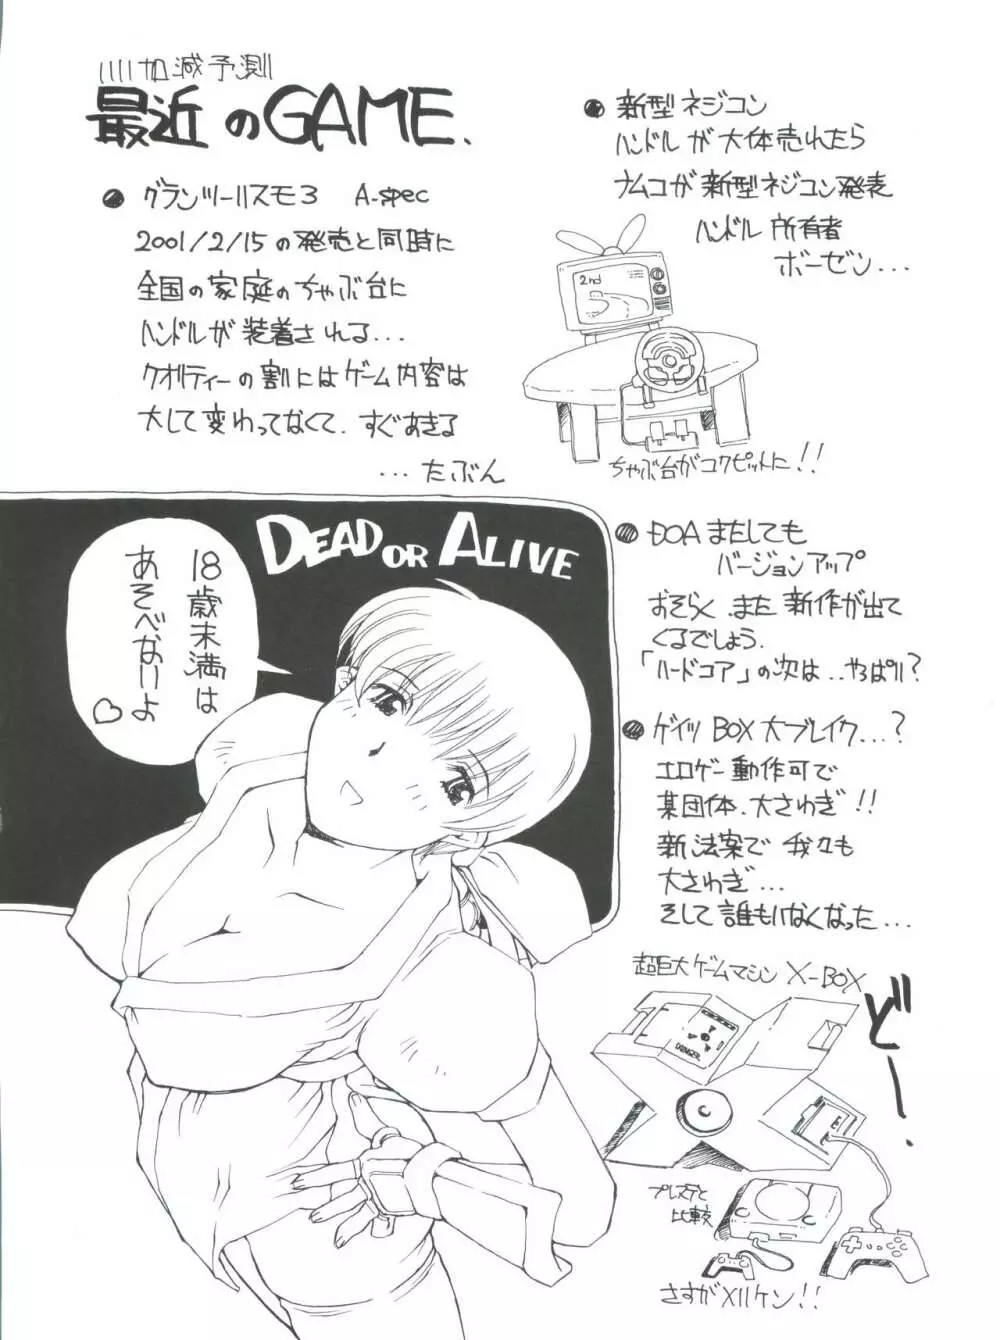 いいかげん予測
最近のGAME.
● グランツーリスモ3 A-spec
2001/2/15の発売と同時に
全国の家庭のちゃぶ台に
ハンドルが装着される...
クオリティーの割にはゲーム内容は
大して変わってなくて、すぐあきる
...たぶん
● 新型ネジコン
ハンドルが大体売れたら
ナムコが新型ネジコン発表
ハンドル所有者
ボーゼン...
2nd
ちゃぶ台がコクピットに!!
DEAD OR ALIVE
18歳末満は
あそべないよ♡
● DOAまたしても
バージョンアップ
おそらく、また新作が出て
くるでしょう.
「ハードコア」の次は..やっぱり?
● ゲイツBOX大ブレイク...?
エロゲー動作可で
某団体、大さわぎ!!
新法案で我々も
大さわぎ...
そして誰もいなくなった...
超巨大ゲームマシン X-BOX
どーー.
DANGER
プレステと
比較
さすがメリケン!!